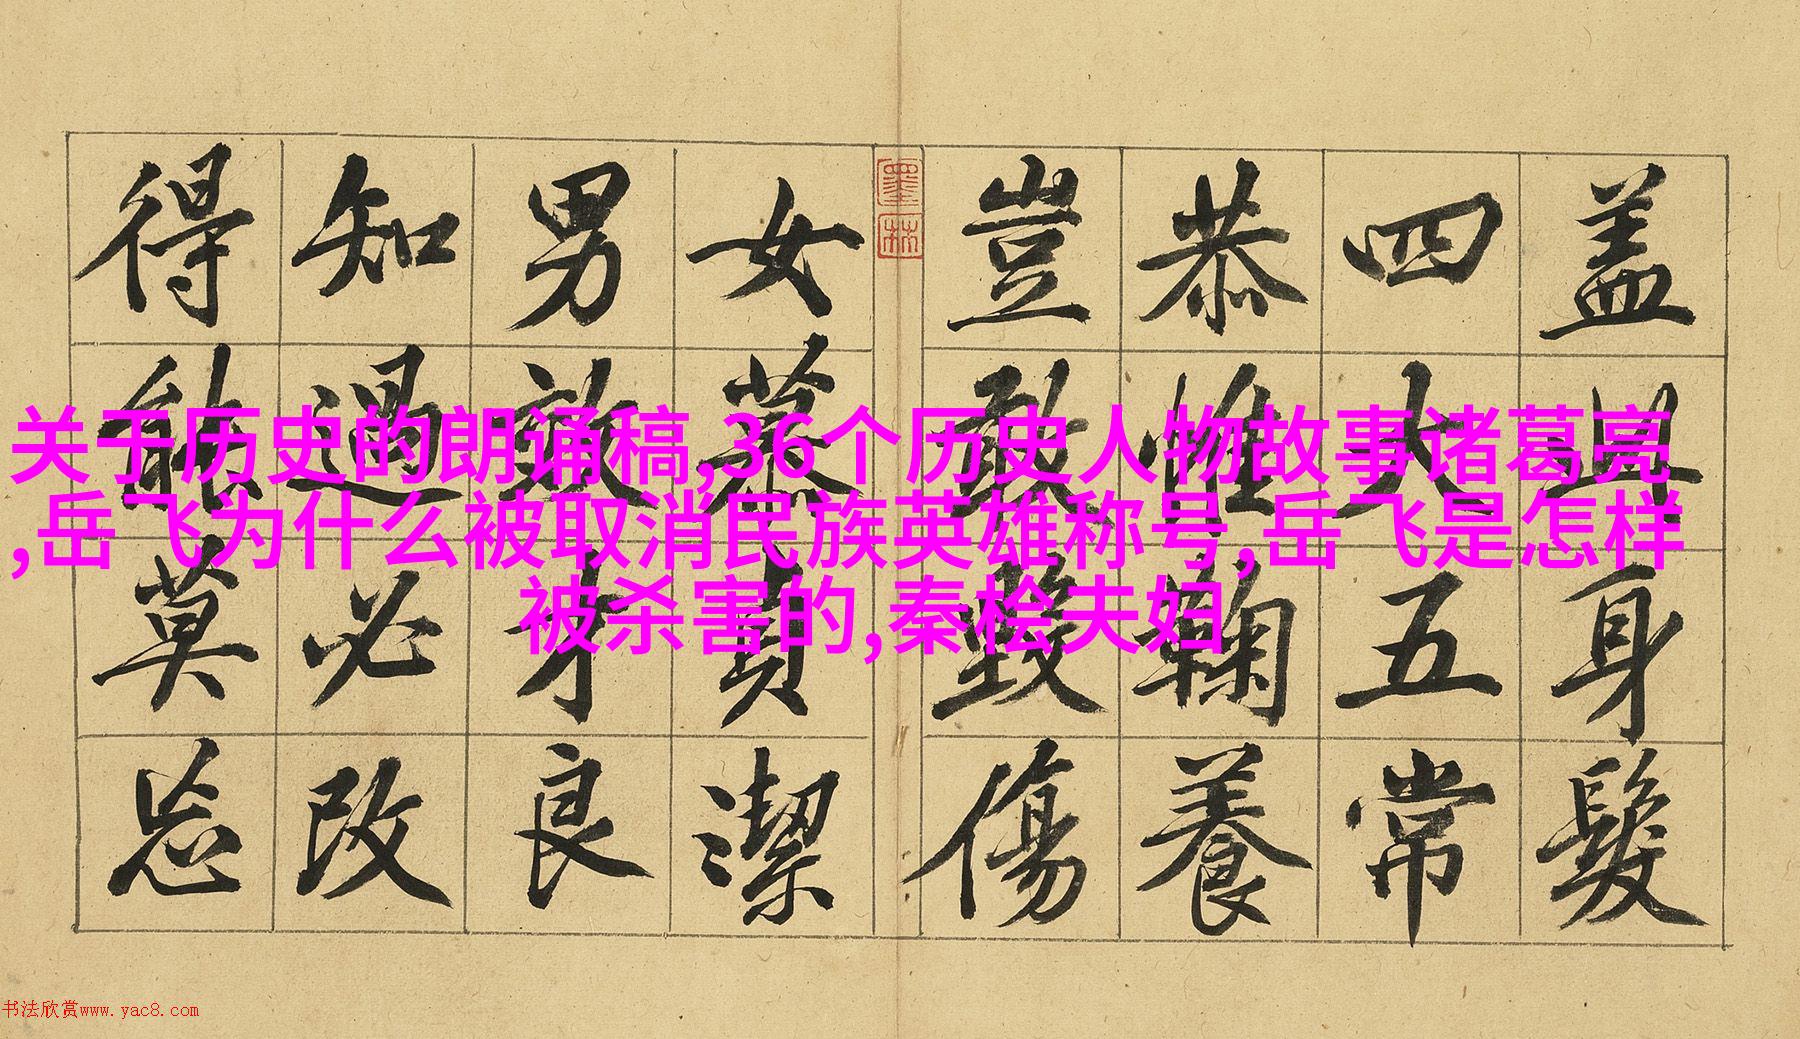 关于历史的朗诵稿,36个历史人物故事诸葛亮
,岳飞为什么被取消民族英雄称号,岳飞是怎样
被杀害的,秦桧夫妇
盖此身髮
四大五常
恭惟鞠養
豈敢毀傷
墨林
女慕貞潔
男效才良
知過必改
得能莫忘
书法欣赏www.yac8.com